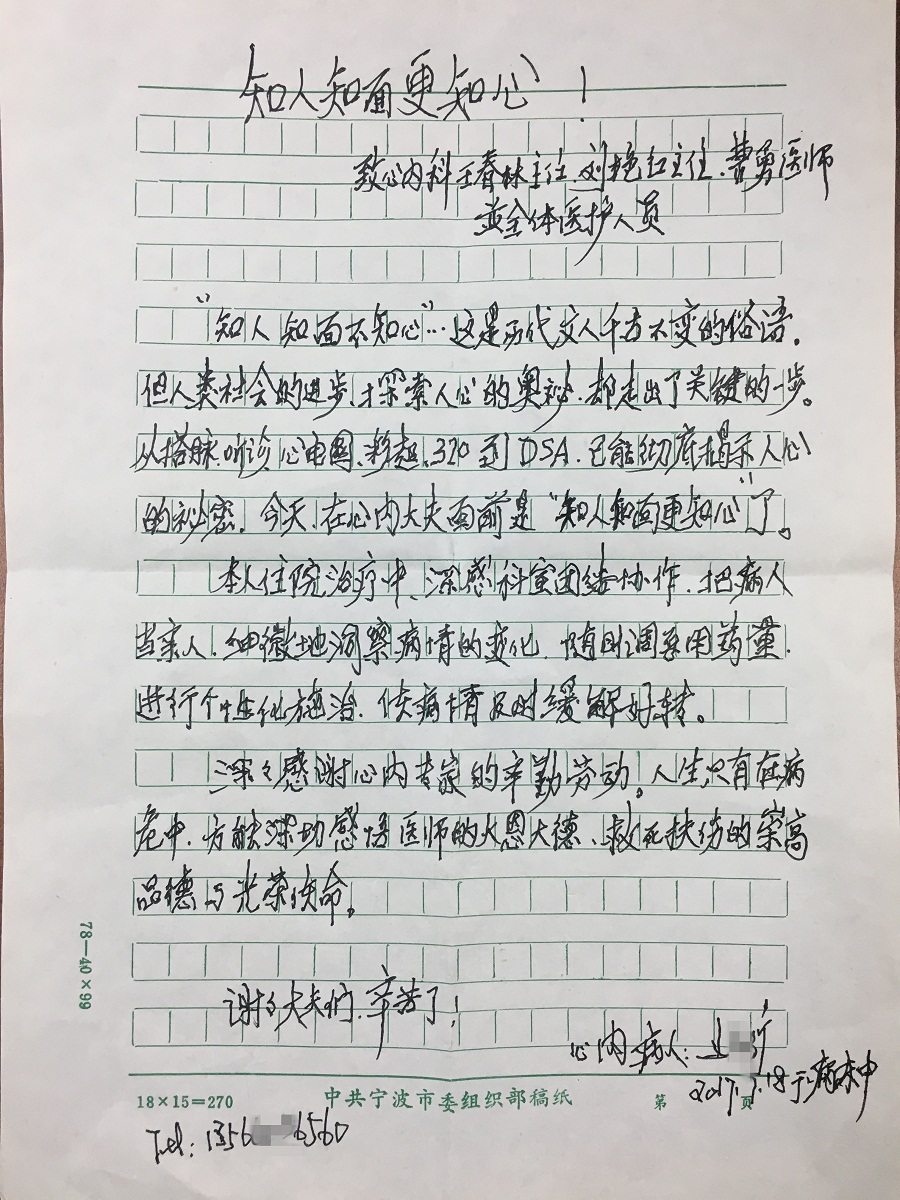 知人知面更知心！
致心内科王春林主任、刘艳红主任、曹勇医师
并全体医护人员
“知人知面不知心”…这是历代文人千古不变的俗语。
但人类社会的进步、探索人心的奥秘、都走出了关键的一步。
从搭脉、听诊、心电图、彩超、320到DSA、已能彻底揭示人心
的秘密。今天、在心内大夫面前是“知人知面更知心”了。
本人住院治疗中、深感科室团结协作、把病人
当亲人、细微地洞察病情的变化、随时调整用药量、
进行个性化施治、使病情及时缓解好转。
深々感谢心内专家的辛勤劳动！人生只有在病
危中、方能深切感悟医师的大恩大德、救死扶伤的崇高
品德与光荣使命。
谢々大夫们、辛苦了！
心内病人：
2017.7.18于病床中
78—40×99
18×15=270
中共宁波市委组织部稿纸
第 页
Tel: 1356 6560